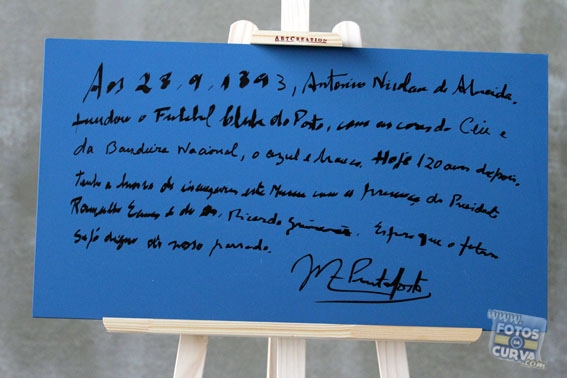 ARTCREATION
Aos 28.9.1893, António Nicolau de Almeida,
fundou o Futebol Clube do Porto, com as cores do Céu e
da Bandeira Nacional, o azul e branco. Hoje 120 anos depois,
tenho a honra de inaugurar este Museu com a presença do Presidente
Ramalho Eanes e do Dr. Ricardo. Espero que o futuro
seja digno do nosso passado.
WWW.
FOTOS
da
CURVA.com